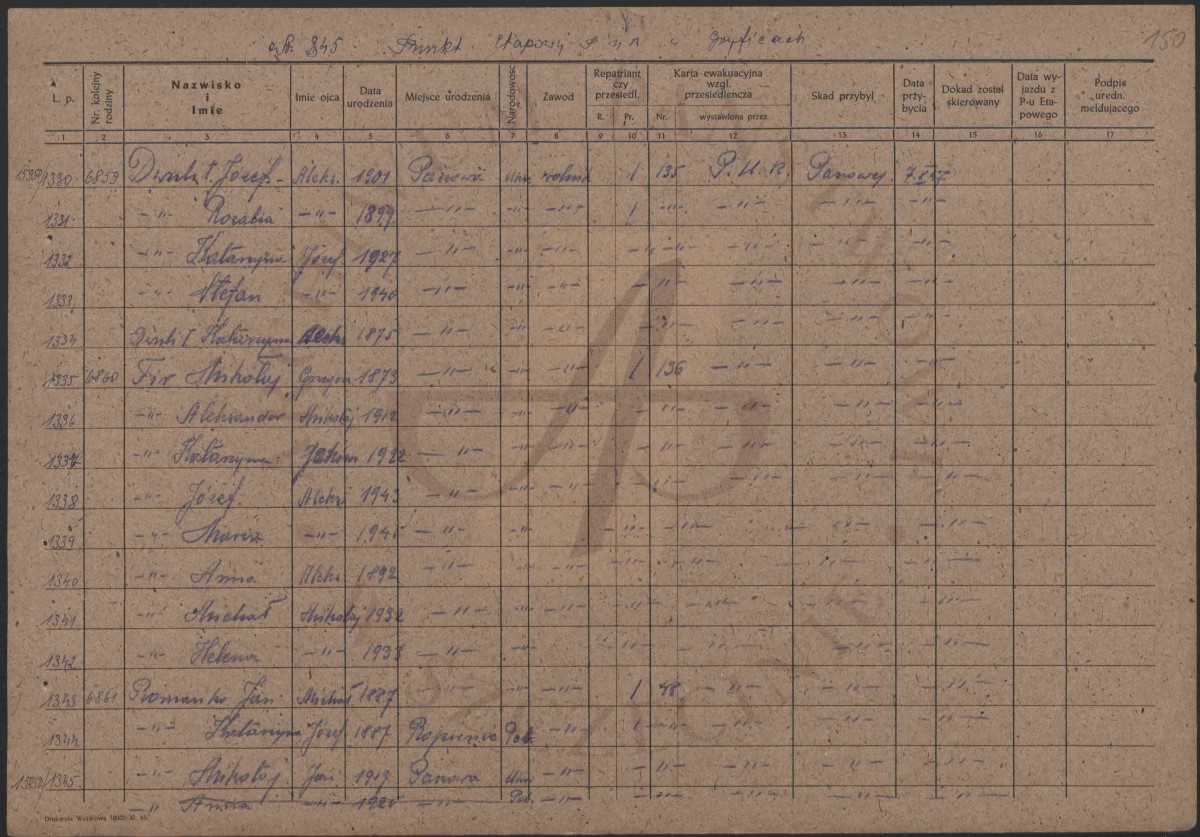 345. Punkt Etapowy P U R w Gryficach
150
L. p.
Nr. kolejny rodziny
Nazwisko i Imie
Imie ojca
Data urodzenia
Miejsce urodzenia
Narodowość
Zawod
Repatriant czy przesiedl.
R. Pr.
Karta ewakuacyjna wzgl. przesiedlencza
Nr. wystawiona przez
Skad przybyl
Data przybycia
Dokad został skierowany
Data wyjazdu z P-u Etapowego
Podpis uredn. meldujacego
1 2 3 4 5 6 7 8 9 10 11 12 13 14 15 16 17
1330 6859 Józef Aleks. 1901 Panowa Ukr. rolnik 1 135 P.U.R. Panowej
1331 -"- Rozalia -"- 1899 -"- -"- -"- 1 -"- -"- -"- -"-
1332 -"- Katarzyna Józef 1927 -"- -"- -"- -"- -"- -"- -"- -"-
1333 -"- Stefan -"- 1940 -"- -"- -"- -"- -"- -"- -"- -"-
1334 Katarzyna Aleks 1875 -"- -"- -"- -"- -"- -"- -"- -"-
1335 6860 Fir Mikołaj Grzegorz 1873 -"- -"- -"- 1 136 -"- -"- -"- -"-
1336 -"- Aleksander Mikołaj 1912 -"- -"- -"- -"- -"- -"- -"- -"- -"-
1337 -"- Katarzyna 1922 -"- -"- -"- -"- -"- -"- -"- -"- -"-
1338 -"- Józef Aleks 1943 -"- -"- -"- -"- -"- -"- -"- -"- -"-
1339 -"- Maria -"- 1945 -"- -"- -"- -"- -"- -"- -"- -"-
1340 -"- Anna Aleks 1892 -"- -"- -"- -"- -"- -"- -"- -"- -"-
1341 -"- Michał Mikołaj 1932 -"- -"- -"- -"- -"- -"- -"- -"- -"-
1342 -"- Helena -"- -"- -"- -"- -"- -"- -"- -"- -"- -"-
1343 6861 Romanko Jan Michał 1887 -"- -"- -"- 1 48 -"- -"- -"- -"-
1344 -"- Katarzyna Józef 1887 Pol. -"- 1 -"- -"- -"- -"- -"-
1345 -"- Mikołaj Jan 1917 Panowa Ukr -"- -"- -"- -"- -"- -"-
-"- Anna -"- 1920 -"- Pol. -"- -"- -"- -"- -"- -"-
Drukarnia Wojskowa 10000-XI. 45.